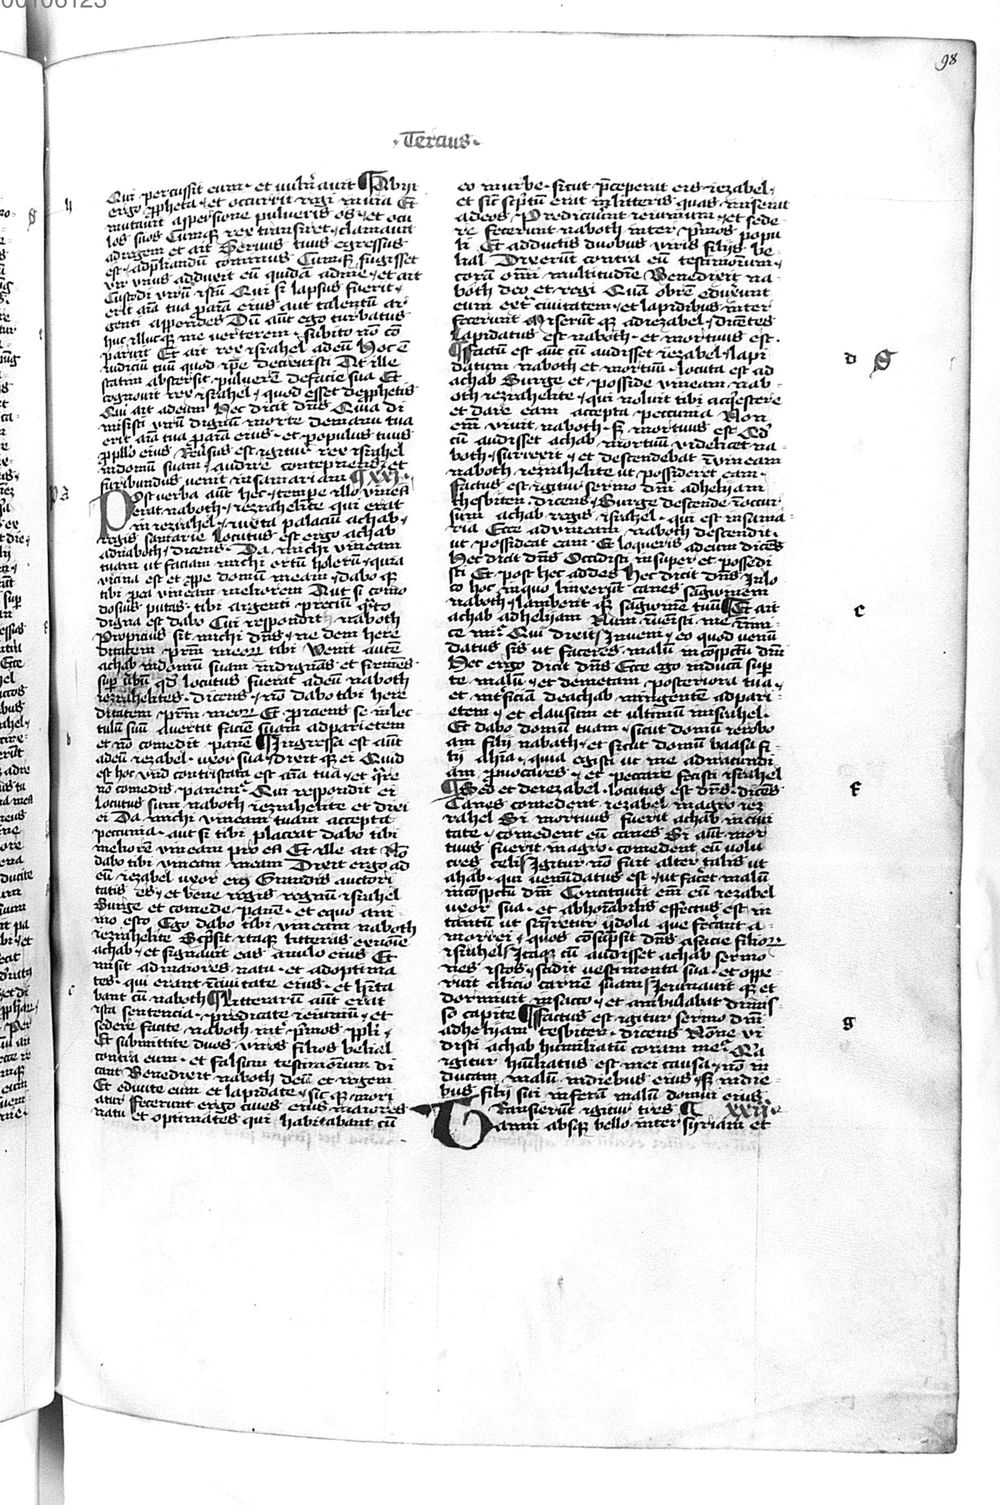 98
·Tercius·
Qui percussit eum · et uulnerauit ¶ Abijt
ergo ꝓpheta · et occurrit regi in uia Et
mutauit aspersione pulueris os · et ocu
los suos Cumqꝫ rex transiret · clamauit
ad regem et ait Seruus tuus egressus
est · ad p̄liandum cominus Cumqꝫ fugisset
vir vnus adduxit eū quidā ad me · et ait
Custodi virū istū Qui si lapsus fuerit ·
erit aīa tua ꝓ aīa eius aut talentū ar
genti appendes Dū aūt ego turbatus
huc illucqꝫ me uerterem · subito nō cō
paruit Et ait rex israhel ad eū Hoc ē
iudiciū tuū quod ip̄e decreuisti At ille
statim abstersit puluerē de facie sua Et
cognouit rex israhel · quod esset de ꝓphetis
Qui ait ad eum Hec dicit dn̄s Quia di
misisti virū dignū morte de manu tua
erit aīa tua ꝓ aīa eius · et populus tuus
ꝓ pplo eius Reūsus est igitur rex israhel
in domū suam · audire contepnens et
furibundus venit in samariam ¶ xxj ·
Post verba aūt hec · tempe illo vinea
erat naboth · iezrahelite qui erat
in iezrahel · iuxta palaciū achab ·
regis samarie Locutus est ergo achab
ad naboth · dicens · Da michi vineam
tuam ut faciam michi ortū holerū · quia
vicina est et ꝓpe domū meam · dabo qꝫ
tibi ꝓ ea vineam meliorem Aut si como
dosius putas · tibi argenti preciū quāto
digna est dabo Cui respondit naboth
Propicius sit michi dn̄s · ne dem here
ditatem pr̄m meorꝫ tibi Venit autē
achab in domū suam indignans et fremens
sup ūbū qd̄ locutus fuerat ad eū naboth
iezrahelites · dicens · nō dabo tibi here
ditatem pr̄m meorꝫ Et ꝓiciens se in lec
tulū suū Auertit faciē suam ad parietem
et nō comedit panē ¶ Ingressa est aūt
ad eū iezabel · uxor sua · dixit qꝫ ei Quid
est hoc vn̄ contristata est aīa tua · et q̄re
nō comedis panem · Qui respondit ei
locutus sum naboth iezrahelite et dixi
ei Da michi vineam tuam accepta
peccunia · aut si tibi placeat dabo tibi
meliorē vineam pro ea Et ille ait Nō
dabo tibi vineam meam Dixit ergo ad
eū iezabel uxor eius Grandis auctori
tatis es · et bene regis regnū israhel
Surge et comede panē · et equo ani
mo esto Ego dabo tibi vineam naboth
iezrahelite Scpsit itaqꝫ litteras ex noīe
achab · et signauit eas anulo eius Et
misit ad maiores natu · et ad optima
tes · qui erant in ciuitate eius · et hīta
bant cū naboth ¶ Litterarū aūt erat
ista sentencia · predicate ieiuniū · et
sedere facite naboth int̄ p̄mos ppli ·
Et submittite duos viros filios belial
contra eum · et falsum testimoniū di
cant Benedixit naboth deū et regem
Et educite eum et lapidate · sic qꝫ mori
atur Fecerunt ergo ciues eius maiores
natu et optimates qui habitabant cū
eo in urbe · sicut p̄ceperat eis iezabel ·
et sic̄ scptū erat in litteris quas miserat
ad eos · Predicauerunt ieiunium · et sede
re fecerunt naboth inter p̄mos popu
li Et adductis duobus viris filijs be
lial Dixerunt contra eū testimoniū ·
corā omī multitudīe Benedixit na
both deo et regi Quā obrē eduxerunt
eum extͣ ciuitatem · et lapidibus inter
fecerunt Miserunt qꝫ ad iezabel · dicētes
Lapidatus est naboth · et mortuus est ·
¶ Factū est aūt cū audisset iezabel · lapi
datum naboth et mortuū · locuta est ad
achab Surge et posside vineam nab
oth iezrahelite · qui noluit tibi acquiescere
et dare eam accepta peccunia Non
em̄ viuit naboth · sꝫ mortuus est Qd̄
cū audisset achab mortuū videlicet na
both · surrexit · et descendebat ī vineam
naboth iezrahelite ut possideret eam ·
Factus est igitur sermo dn̄i ad helyam
thesbiten · dicens · Surge descende ī occur
sum achab regis israhel · qui est in sama
ria Ecce ad vineam naboth descendit ·
ut possideat eam Et loqueris ad eum dicēs
Hec dicit dn̄s Occidisti insuper et possedi
sti Et post hec addes Hec dicit dn̄s In lo
co hoc in quo linxerūt canes sāgwinem
naboth · lambent qꝫ sāgwinē tuū ¶ Et ait
achab ad helyam Num īuenisti me inimi
ce mi · Qui dixit Inueni · eo quod venū
datus sis ut faceres malū in cōspctu dn̄i
Hec ergo dicit dn̄s Ecce ego inducā sup
te malū · et demetam posteriora tua ·
et int̄ficiā de achab mingentē ad pari
etem · et clausum et ultimū in israhel ·
Et dabo domū tuam · sicut domū ierobo
am filij nabath · et sicut domū baasa fi
lij ahia · quia egisti ut me ad iracundi
am ꝓuocares · et peccare fecisti israhel
¶ Sed et de iezabel · locutus est dn̄s · dicēs
Canes comedent iezabel in agro iez
rahel Si mortuus fuerit achab in ciui
tate · comedent eū canes Si aūt mor
tuus fuerit in agro · comedent eū volu
cres celi Igitur nō fuit alter talis ut
ahab · qui venūdatus est · ut facet malū
in cōspctu dn̄i Concitauit em̄ eū iezabel
uxor sua · et abhoīabilis effectus est in
tantū ut sequeretur ydola que fecāt a
morrei · quos cōsūpsit dn̄s a facie filiorꝫ
israhel Itaqꝫ cū audisset achab sermo
nes istos · scidit vestimenta sua · et ope
ruit cilicio carnē suam Ieiunauit qꝫ et
dormiuit in sacco · et ambulabat dimis
so capite ¶ Factus est igitur sermo dn̄i
ad helyam tesbiten · dicens · Nōne vi
disti achab humiliatū coram me · Quia
igitur hūiliatus est mei causa · nō in
ducam malū in diebus eius · sꝫ in die
bus filij sui inferā malū domui eius ·
Transierūt igitur tres ¶ xxij ·
anni absqꝫ bello inter syriam et
d
e
f
g